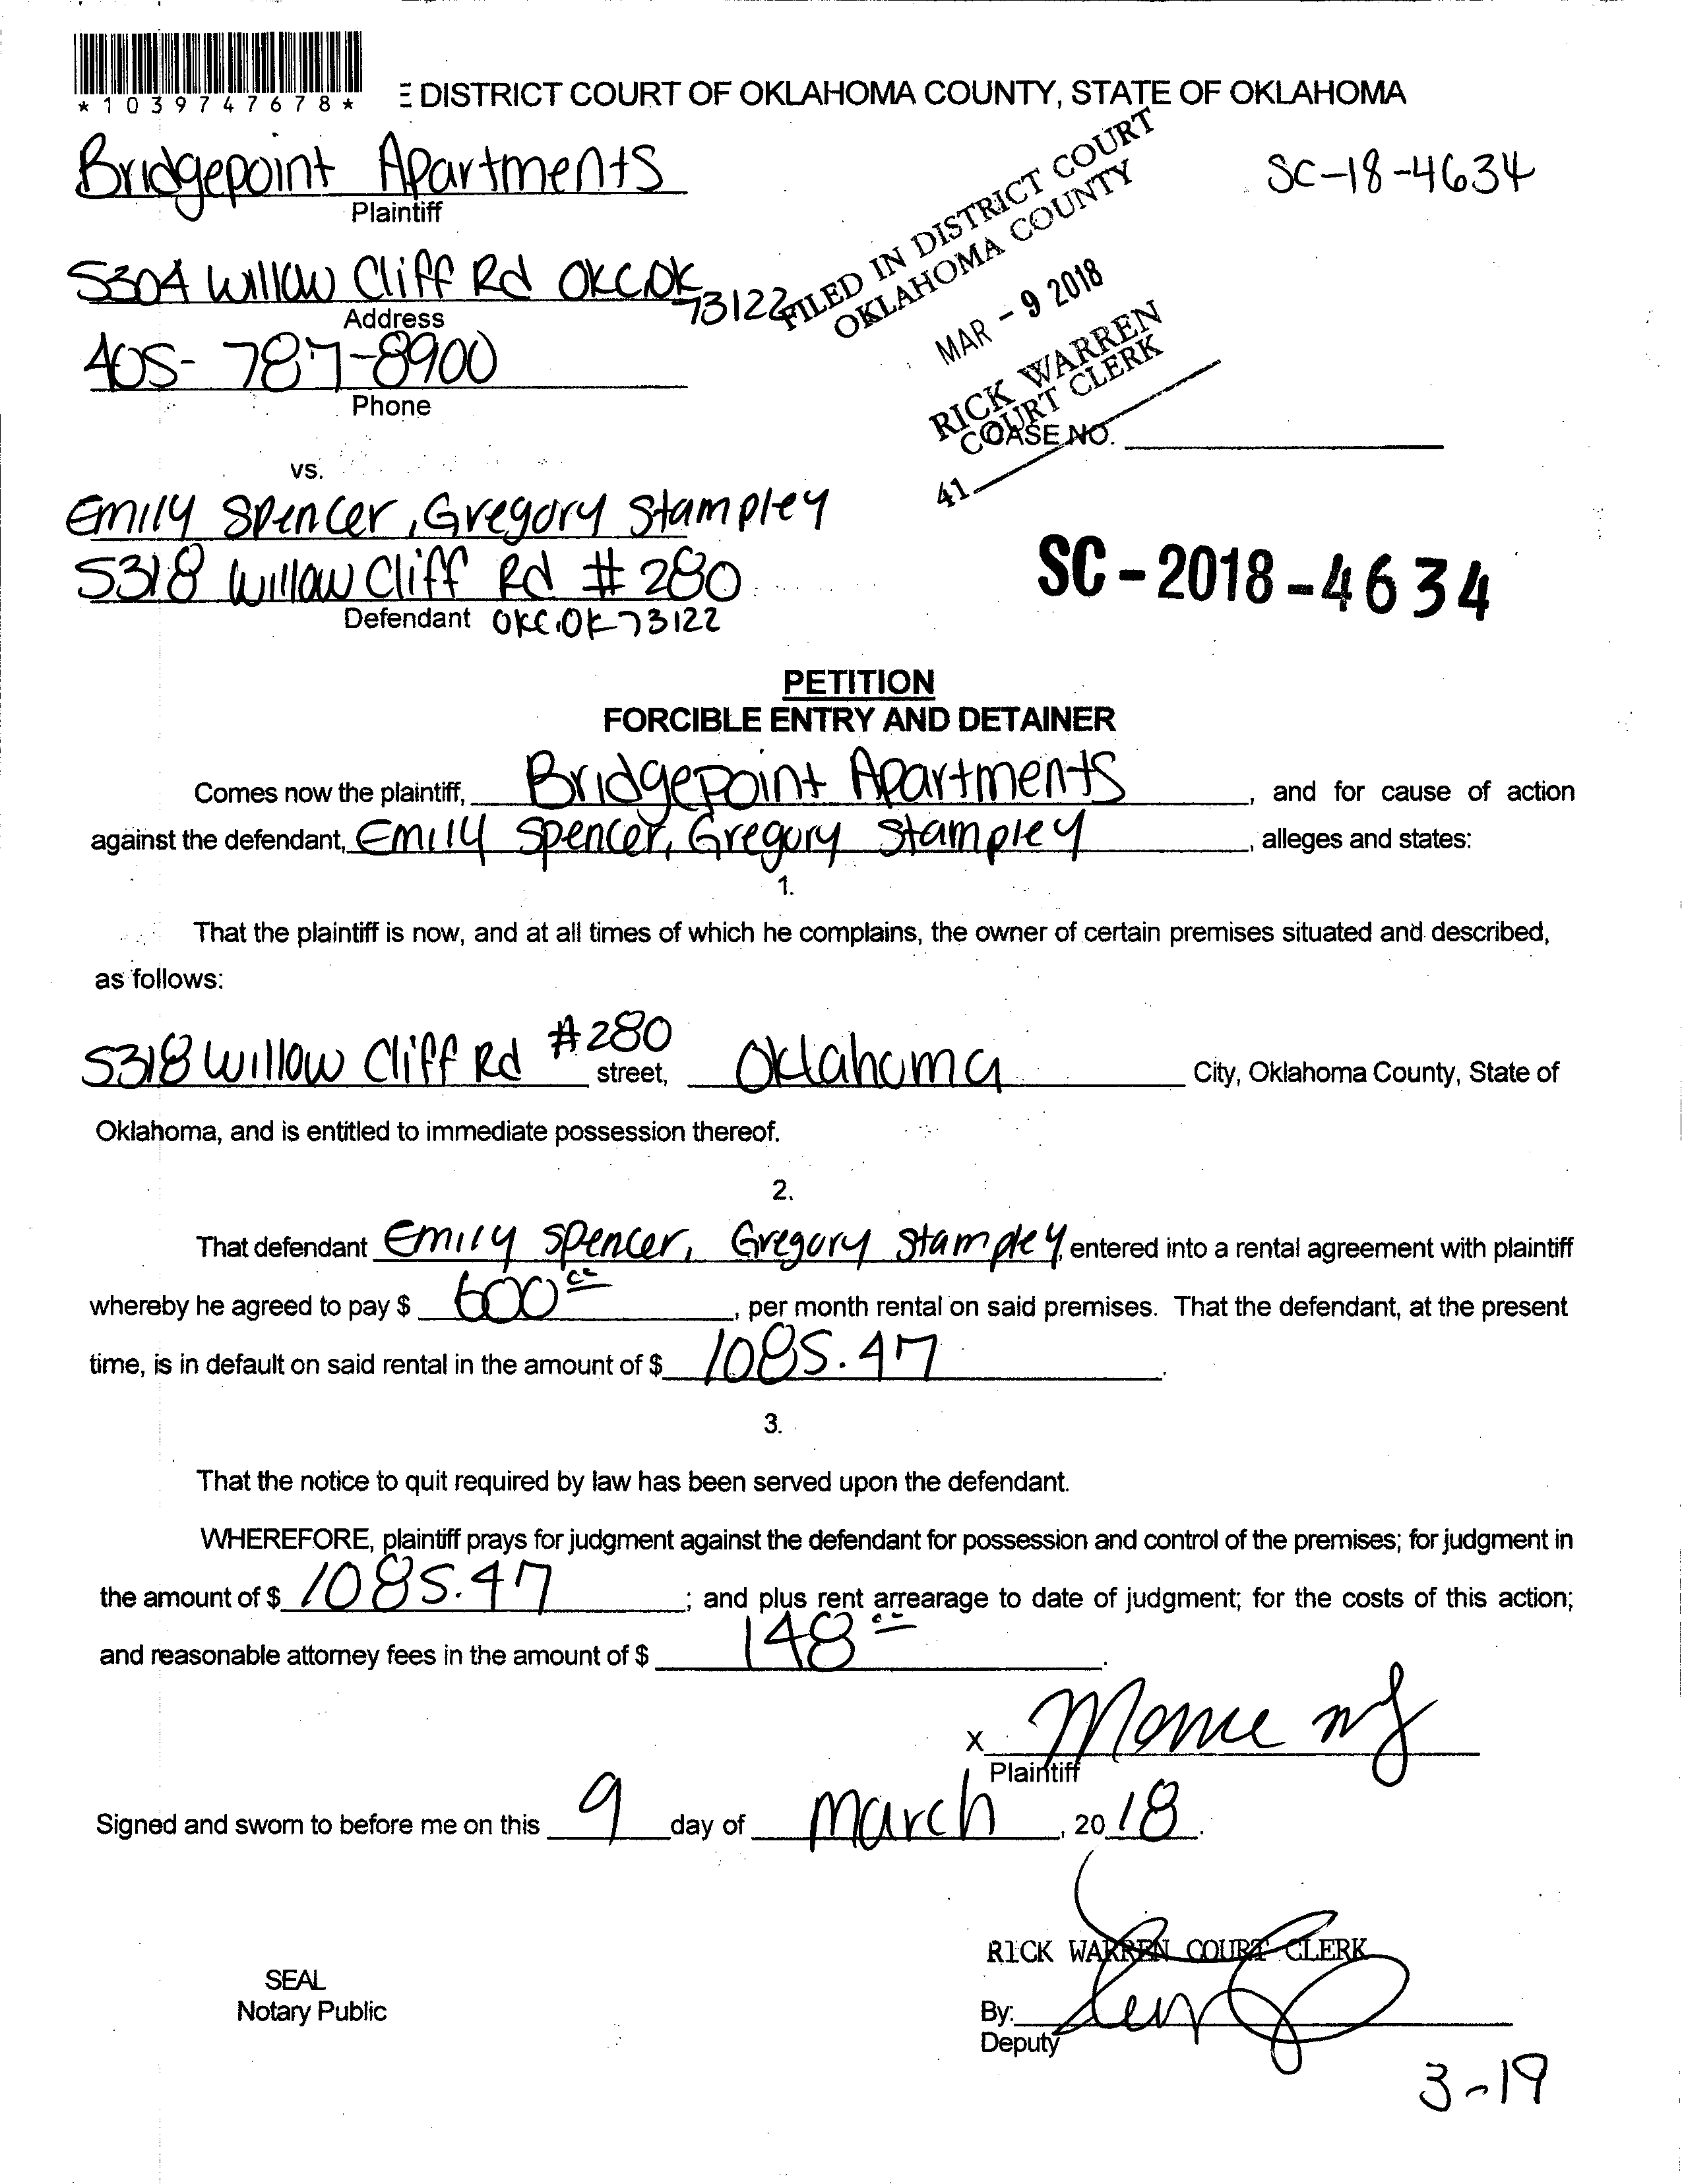 *1039747678*
E DISTRICT COURT OF OKLAHOMA COUNTY, STATE OF OKLAHOMA
Bridgepoint Apartments
Plaintiff
SC-18-4634
5304 Willow Cliff Rd OKC.OK 73122
Address
FILED IN DISTRICT COURT
OKLAHOMA COUNTY
MAR - 9 2018
RICK WARREN
COURT CLERK
41
405-787-8900
Phone
CASE NO.
vs.
Emily Spencer, Gregory Stampley
5318 Willow Cliff Rd #280
Defendant OKC.OK 73122
SC-2018-4634
PETITION
FORCIBLE ENTRY AND DETAINER
Comes now the plaintiff, Bridgepoint Apartments, and for cause of action
against the defendant, Emily Spencer, Gregory Stampley, alleges and states:
1.
That the plaintiff is now, and at all times of which he complains, the owner of certain premises situated and described,
as follows:
5318 Willow Cliff Rd #280 street, Oklahoma City, Oklahoma County, State of
Oklahoma, and is entitled to immediate possession thereof.
2.
That defendant Emily Spencer, Gregory Stampley, entered into a rental agreement with plaintiff
whereby he agreed to pay $ 600 00, per month rental on said premises. That the defendant, at the present
time, is in default on said rental in the amount of $ 1085.47.
3.
That the notice to quit required by law has been served upon the defendant.
WHEREFORE, plaintiff prays for judgment against the defendant for possession and control of the premises; for judgment in
the amount of $ 1085.47; and plus rent arrearage to date of judgment; for the costs of this action;
and reasonable attorney fees in the amount of $ 148 00.
X
Plaintiff
Signed and sworn to before me on this 9 day of March, 2018.
RICK WARREN COURT CLERK
SEAL
Notary Public
By:
Deputy
3-19